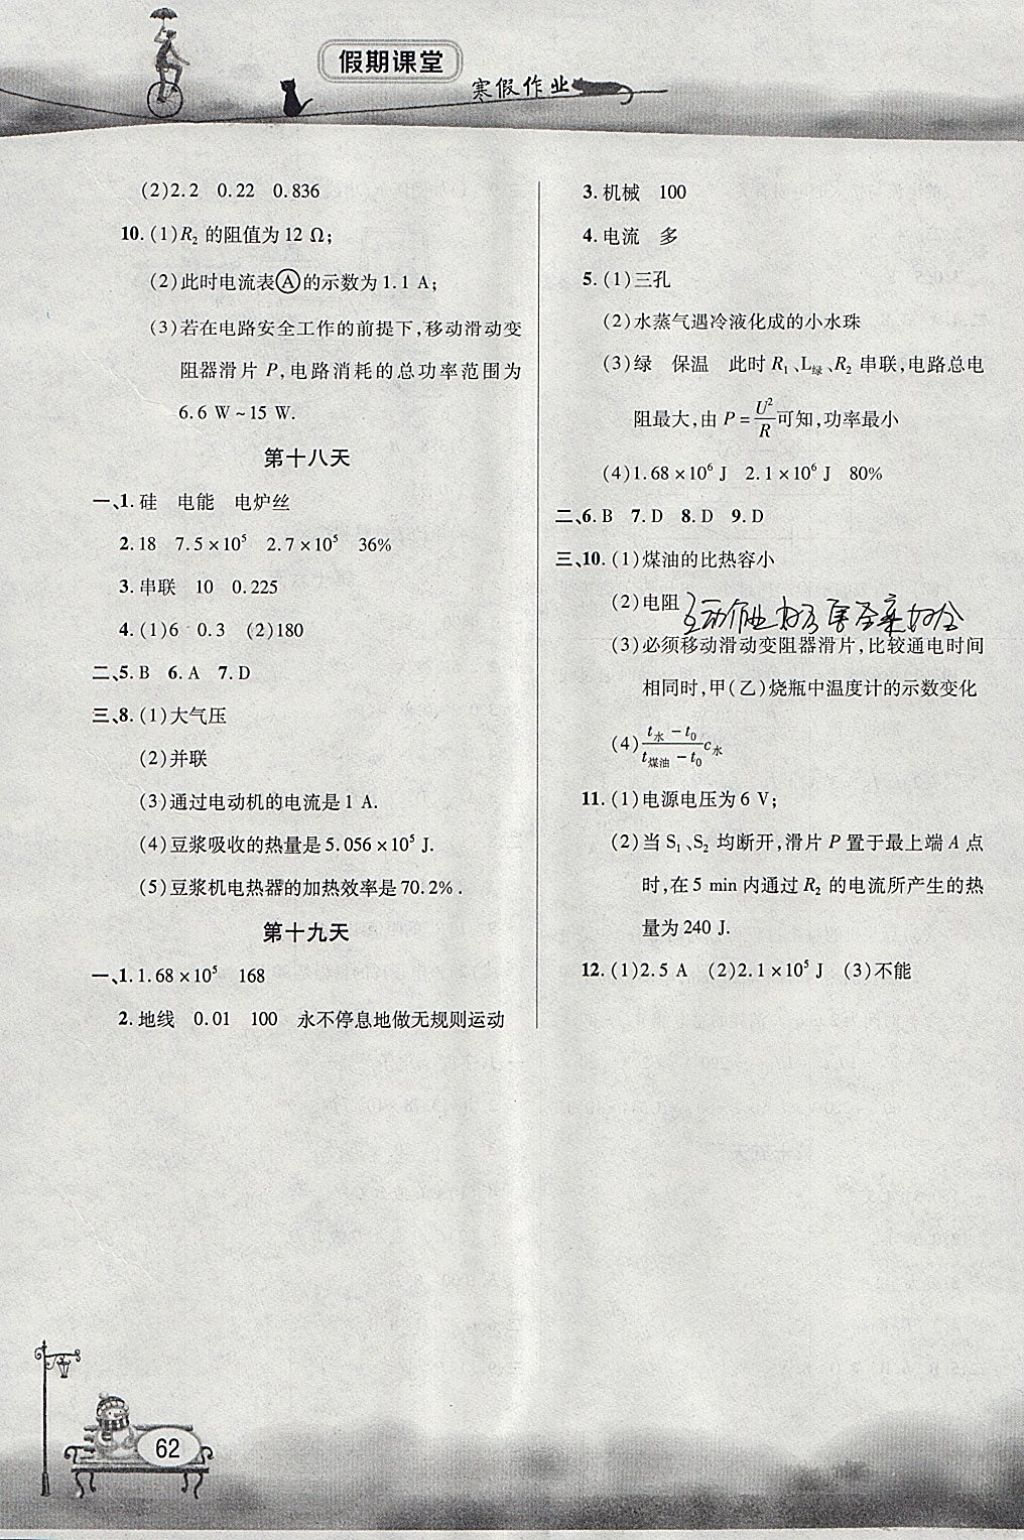 假期课堂
寒假作业
(2)2.2 0.22 0.836
10.(1)R₂ 的阻值为12 Ω;
(2)此时电流表Ⓐ的示数为1.1 A;
(3)若在电路安全工作的前提下,移动滑动变
阻器滑片 P,电路消耗的总功率范围为
6.6 W~15 W.
第十八天
一、1.硅 电能 电炉丝
2.18 7.5×10⁵ 2.7×10⁵ 36%
3.串联 10 0.225
4.(1)6 0.3 (2)180
二、5.B 6.A 7.D
三、8.(1)大气压
(2)并联
(3)通过电动机的电流是1 A.
(4)豆浆吸收的热量是5.056×10⁵ J.
(5)豆浆机电热器的加热效率是70.2%.
第十九天
一、1.1.68×10⁵ 168
2.地线 0.01 100 永不停息地做无规则运动
3.机械 100
4.电流 多
5.(1)三孔
(2)水蒸气遇冷液化成的小水珠
(3)绿 保温 此时 R₁、L绿、R₂ 串联,电路总电
阻最大,由 P=U²/R可知,功率最小
(4)1.68×10⁶ J 2.1×10⁶ J 80%
二、6.B 7.D 8.D 9.D
三、10.(1)煤油的比热容小
(2)电阻
(3)必须移动滑动变阻器滑片,比较通电时间
相同时,甲(乙)烧瓶中温度计的示数变化
(4)(t水-t₀)/(t煤油-t₀)c水
11.(1)电源电压为6 V;
(2)当 S₁、S₂ 均断开,滑片 P 置于最上端 A 点
时,在5 min内通过 R₂ 的电流所产生的热
量为240 J.
12.(1)2.5 A (2)2.1×10⁵ J (3)不能
62